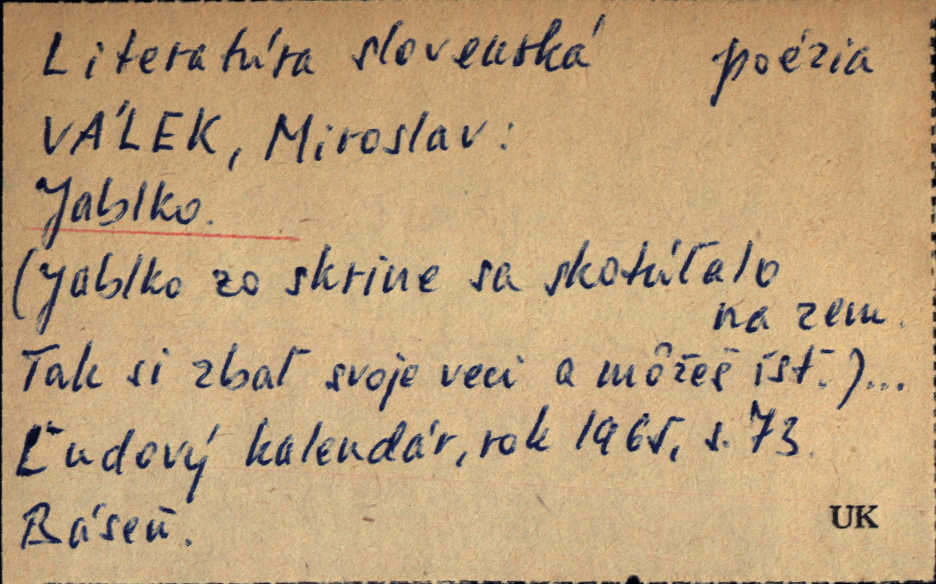 Literatúra slovenská poézia
VÁLEK, Miroslav:
Jablko.
(Jablko zo skrine sa skotúľalo
na zem.
Tak si zbaľ svoje veci a môžeš ísť.)...
Ľudový kalendár, rok 1965, s. 73.
Báseň.
UK